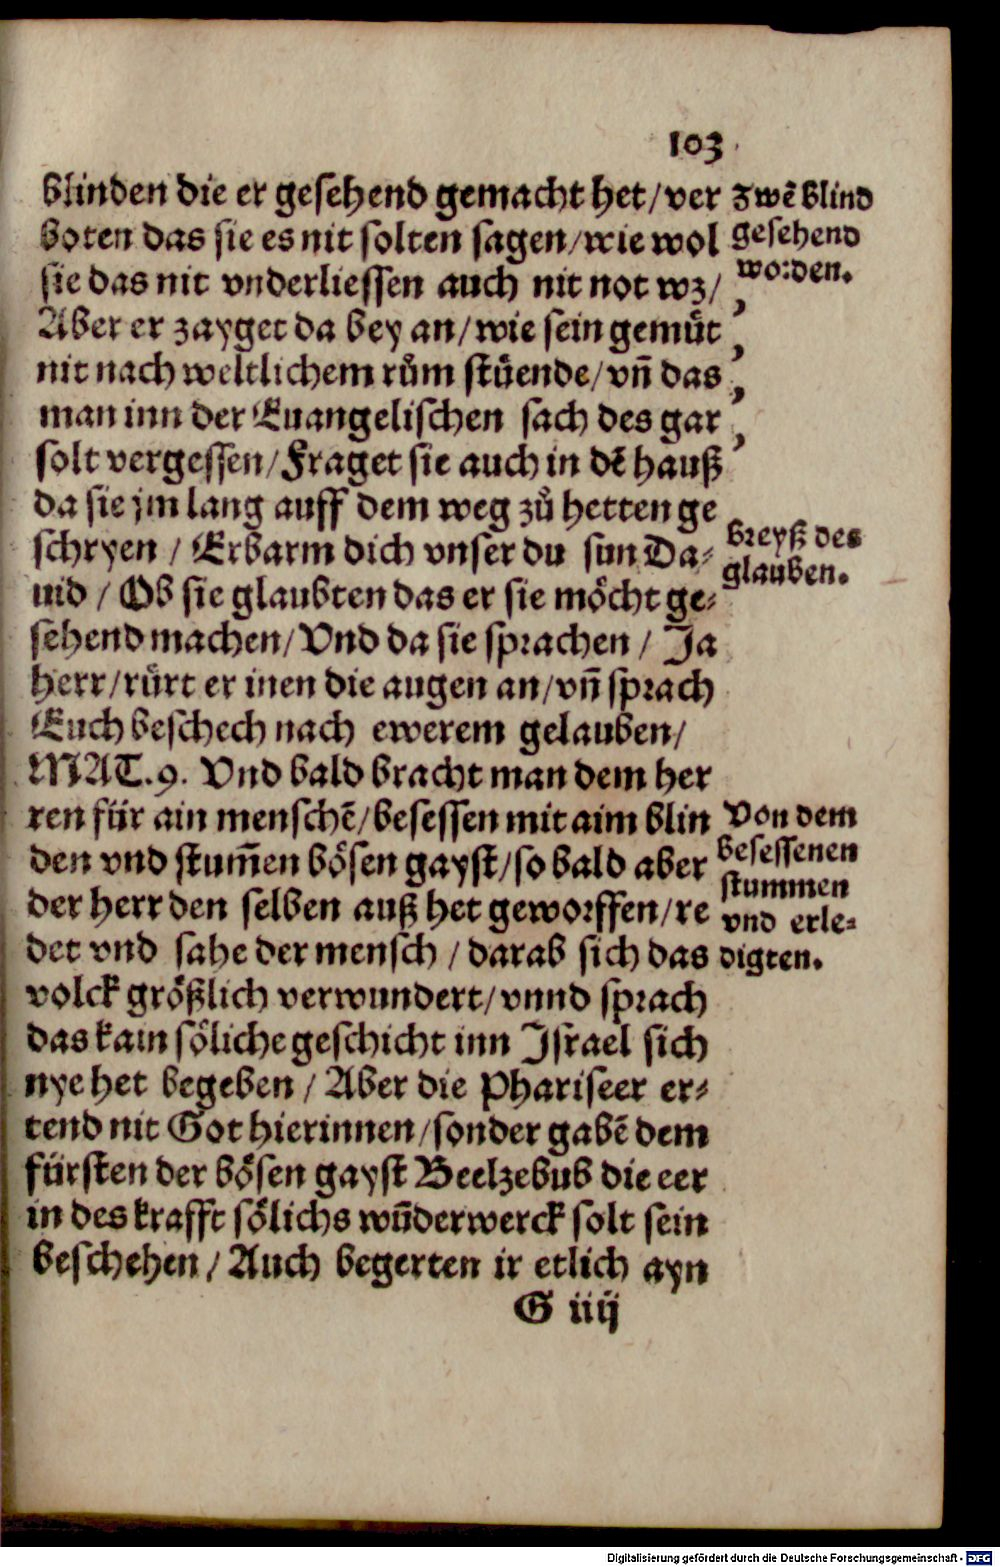 103
blinden die er gesehend gemacht het/ver
boten das sie es nit solten sagen/wie wol
sie das nit vnderliessen auch nit not wz/
Aber er zayget da bey an/wie sein gemüt
nit nach weltlichem rům stüende/vñ das
man inn der Euangelischen sach des gar
solt vergessen/Fraget sie auch in dẽ hauß
da sie jm lang auff dem weg zů hetten ge
schryen / Erbarm dich vnser du sun Da⸗
uid / Ob sie glaubten das er sie möcht ge⸗
sehend machen/Vnd da sie sprachen / Ja
herr/rürt er inen die augen an/vñ sprach
Euch beschech nach ewerem gelauben/
MAT.9. Vnd bald bracht man dem her
ren für ain menschẽ/besessen mit aim blin
den vnd stum̃en bösen gayst/so bald aber
der herr den selben auß het geworffen/re
det vnd sahe der mensch / darab sich das
volck größlich verwundert/vnnd sprach
das kain söliche geschicht inn Israel sich
nye het begeben / Aber die Phariseer er⸗
tend nit Got hierinnen/sonder gabẽ dem
fürsten der bösen gayst Beelzebub die eer
in des krafft sölichs wũderwerck solt sein
beschehen / Auch begerten ir etlich ayn
G iiij
zwẽ blind
gesehend
worden.
breyß des
glauben.
Von dem
besessenen
stummen
vnd erle⸗
digten.
Digitalisierung gefördert durch die Deutsche Forschungsgemeinschaft - DFG